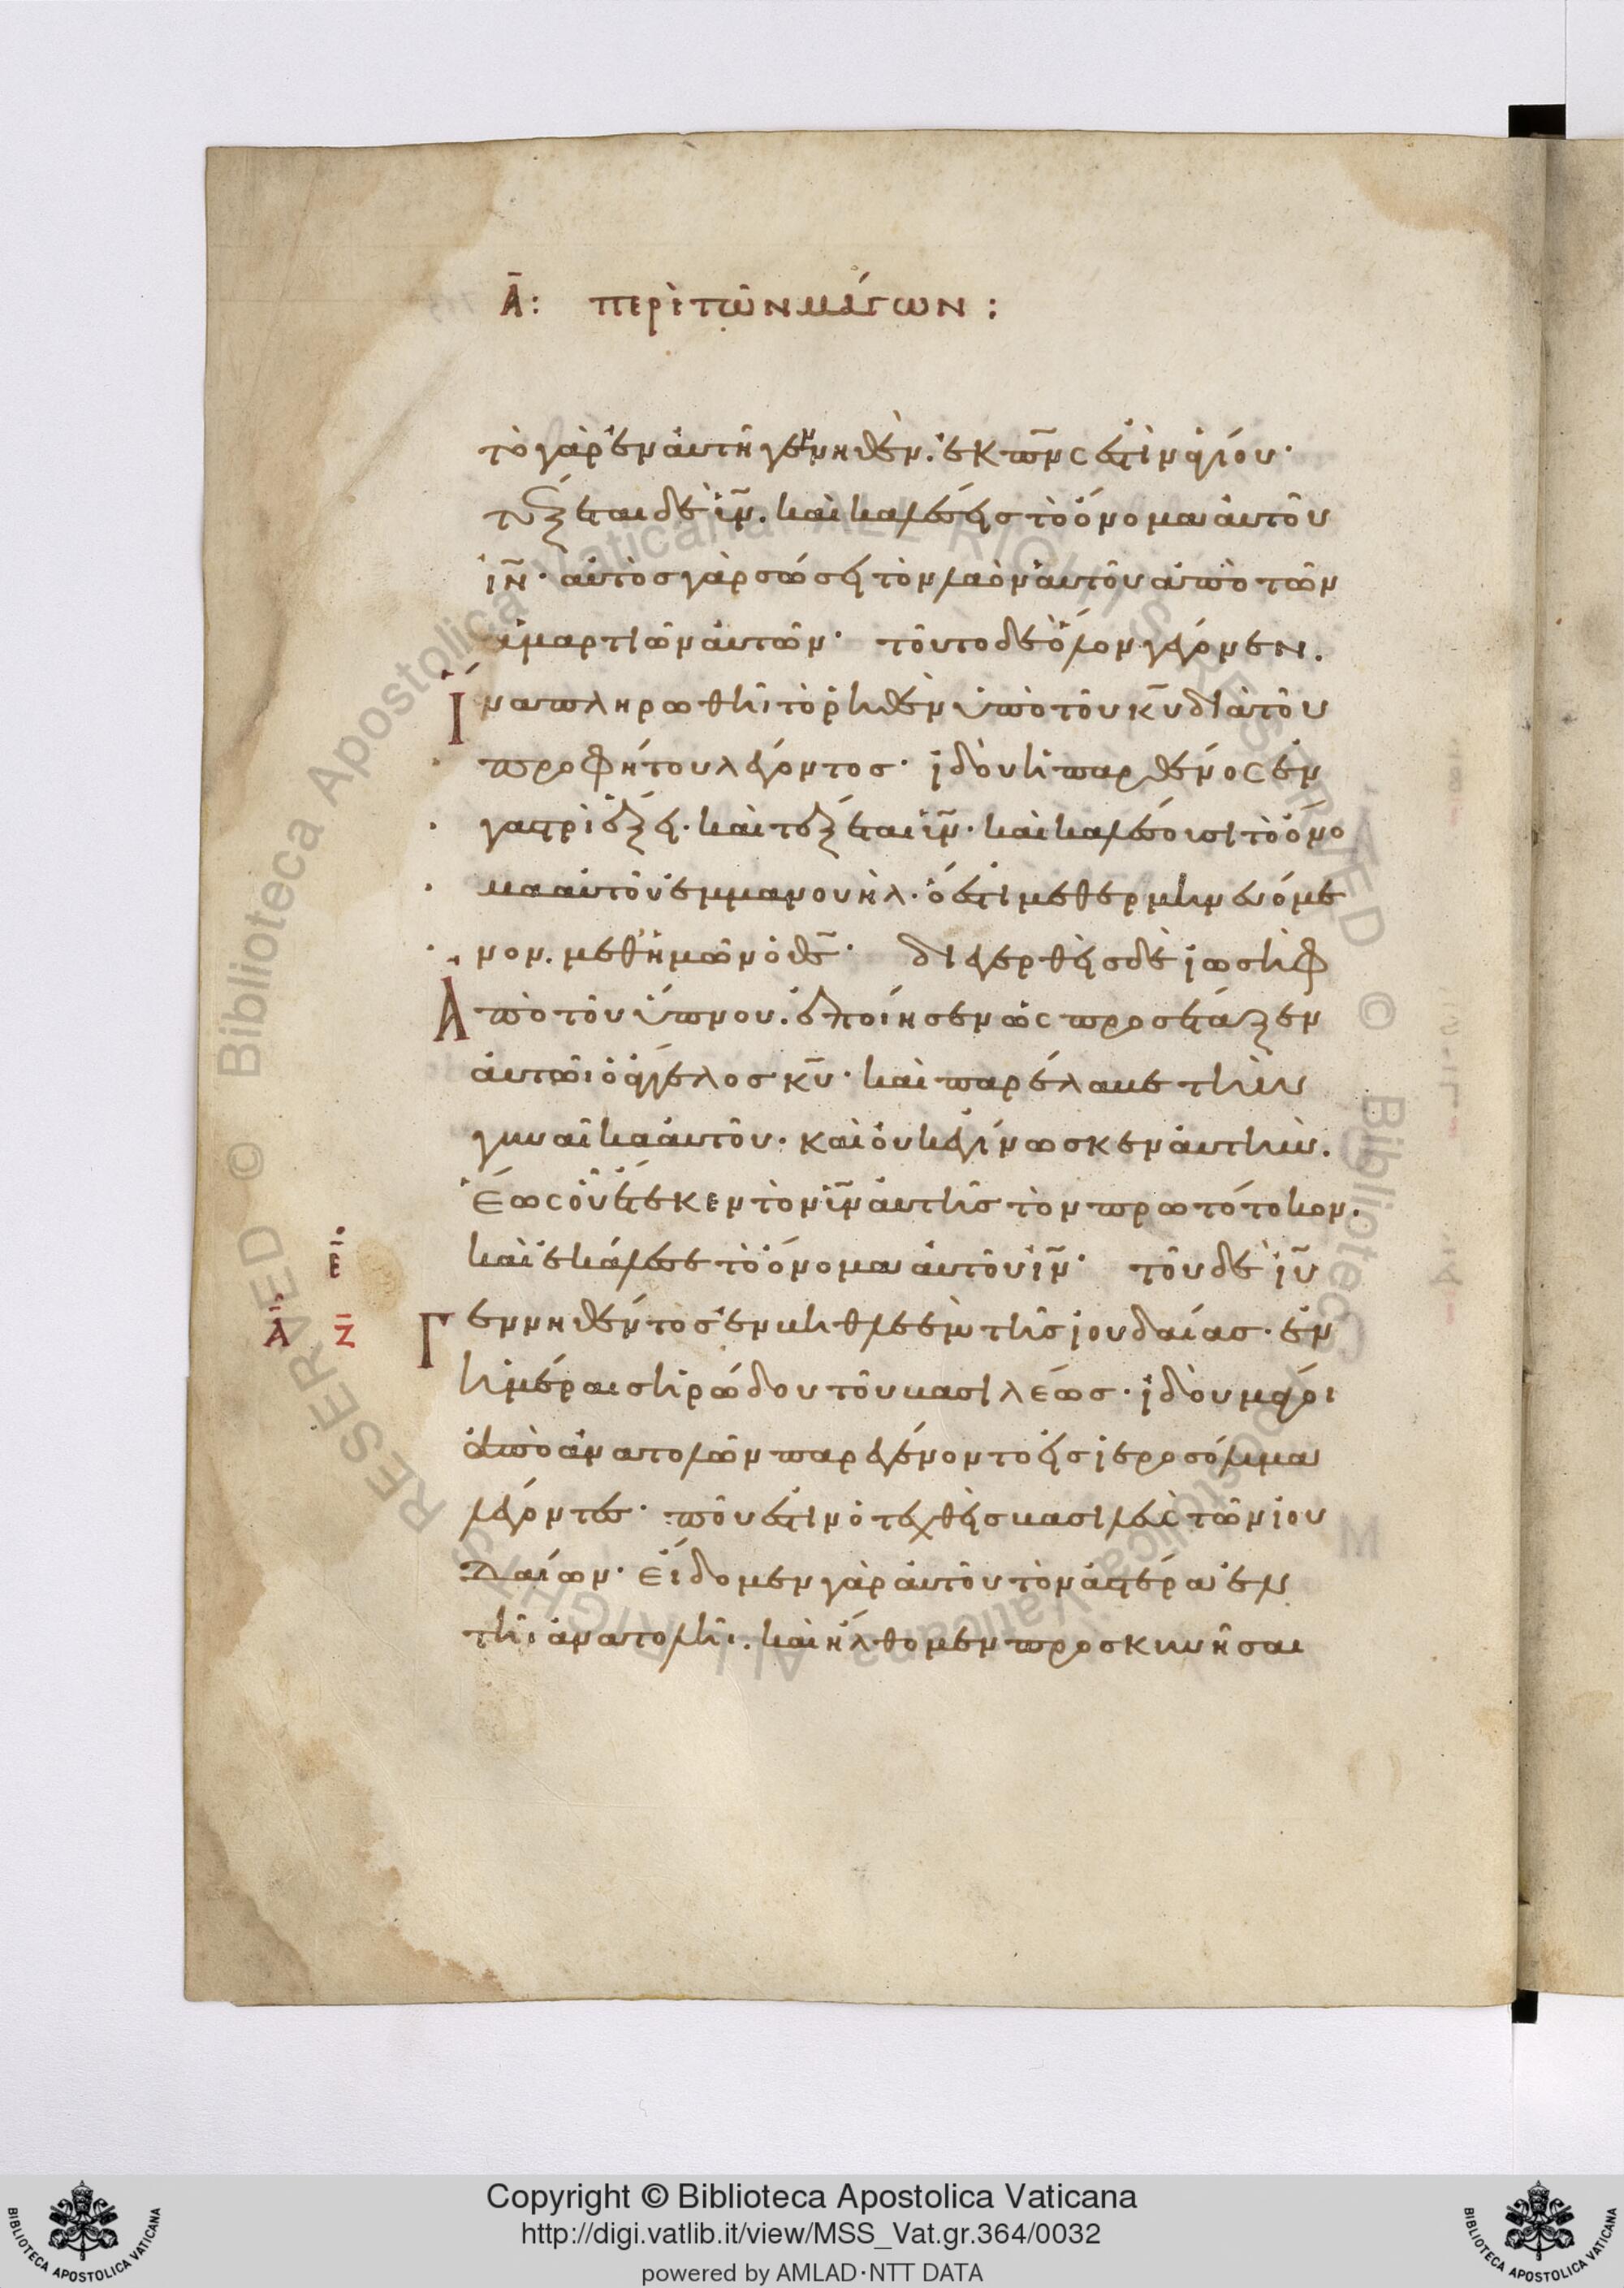 Α̅: περὶ τῶν μάγων :
τὸ γὰρ ἐν αὐτῆ γεννηθὲν. ἐκ πν̅ς ἐστὶν ἁγίου·
τέξεται δὲ ὑ̅ν. καὶ καλέσεις τὸ ὄνομα αὐτοῦ
ι̅ν· αὐτὸς γὰρ σώσει τὸν λαὸν αὐτοῦ ἀπὸ τῶν
ἁμαρτιῶν αὐτῶν· τοῦτο δὲ ὅλον γέγονεν.
Ἵνα πληρωθῆι τὸ ῥηθὲν ὑπὸ τοῦ κ̅υ διὰ τοῦ
προφήτου λέγοντος· ἰδοὺ ἡ παρθένος ἐν
γαστρὶ ἕξει. καὶ τέξεται υ̅ν· καὶ καλέσουσι τὸ ὄνο
μα αὐτοῦ ἐμμανουήλ· ὅ ἐστι μεθερμηνευόμε
νον. μεθ' ἡμῶν ὁ θ̅ς· διεγερθεὶς δὲ ἰωσὴφ
Ἀπὸ τοῦ ὕπνου. ἐποίησεν ὡς προσέταξεν
αὐτῶι ὁ ἄγγελος κ̅υ· καὶ παρέλαβε τὴν
γυναῖκα αὐτοῦ· καὶ οὐκ ἐγίνωσκεν αὐτὴν.
Ἕως οὗ ἔτεκεν τὸν υ̅ν αὐτῆς τὸν πρωτότοκον.
καὶ ἐκάλεσε τὸ ὄνομα αὐτοῦ ι̅ν· τοῦ δὲ ι̅υ
ε̅
Α̅ Ζ̅
Γεννηθέντος ἐν βηθλεὲμ τῆς ἰουδαίας· ἐν
ἡμέραις ἡρώδου τοῦ βασιλέως· ἰδοὺ μάγοι
ἀπὸ ἀνατολῶν παρεγένοντο εἰς ἱεροσόλυμα
λέγοντες· ποῦ ἐστὶν ὁ τεχθεὶς βασιλεὺς τῶν ἰου
δαίων· εἴδομεν γὰρ αὐτοῦ τὸν ἀστέρα ἐν
τῆι ἀνατολῆι. καὶ ἤλθομεν προσκυνῆσαι
Biblioteca Apostolica Vaticana ALL RIGHTS RESERVED ©
Copyright © Biblioteca Apostolica Vaticana
http://digi.vatlib.it/view/MSS_Vat.gr.364/0032
powered by AMLAD·NTT DATA
BIBLIOTECA APOSTOLICA VATICANA
BIBLIOTECA APOSTOLICA VATICANA